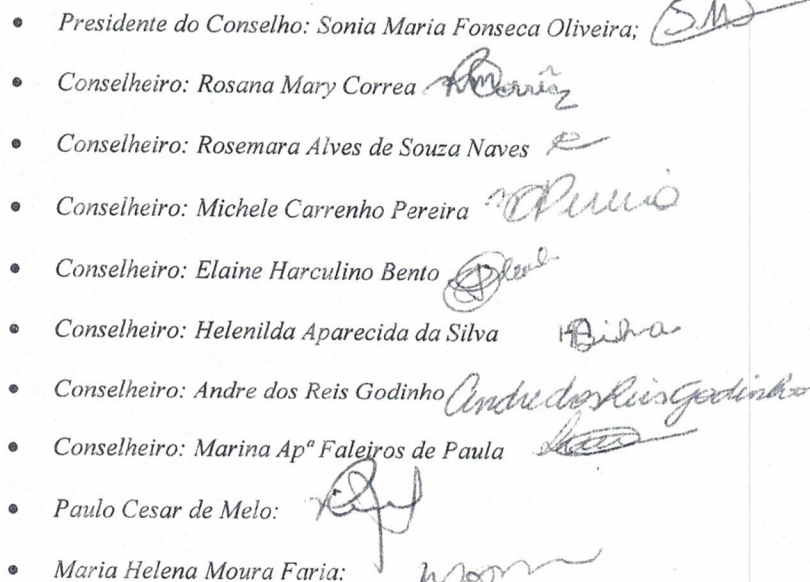 • Presidente do Conselho: Sonia Maria Fonseca Oliveira; SM
• Conselheiro: Rosana Mary Correa
• Conselheiro: Rosemara Alves de Souza Naves
• Conselheiro: Michele Carrenho Pereira
• Conselheiro: Elaine Harculino Bento
• Conselheiro: Helenilda Aparecida da Silva
• Conselheiro: Andre dos Reis Godinho Andre dos Reis Godinho
• Conselheiro: Marina Apª Faleiros de Paula
• Paulo Cesar de Melo:
• Maria Helena Moura Faria: